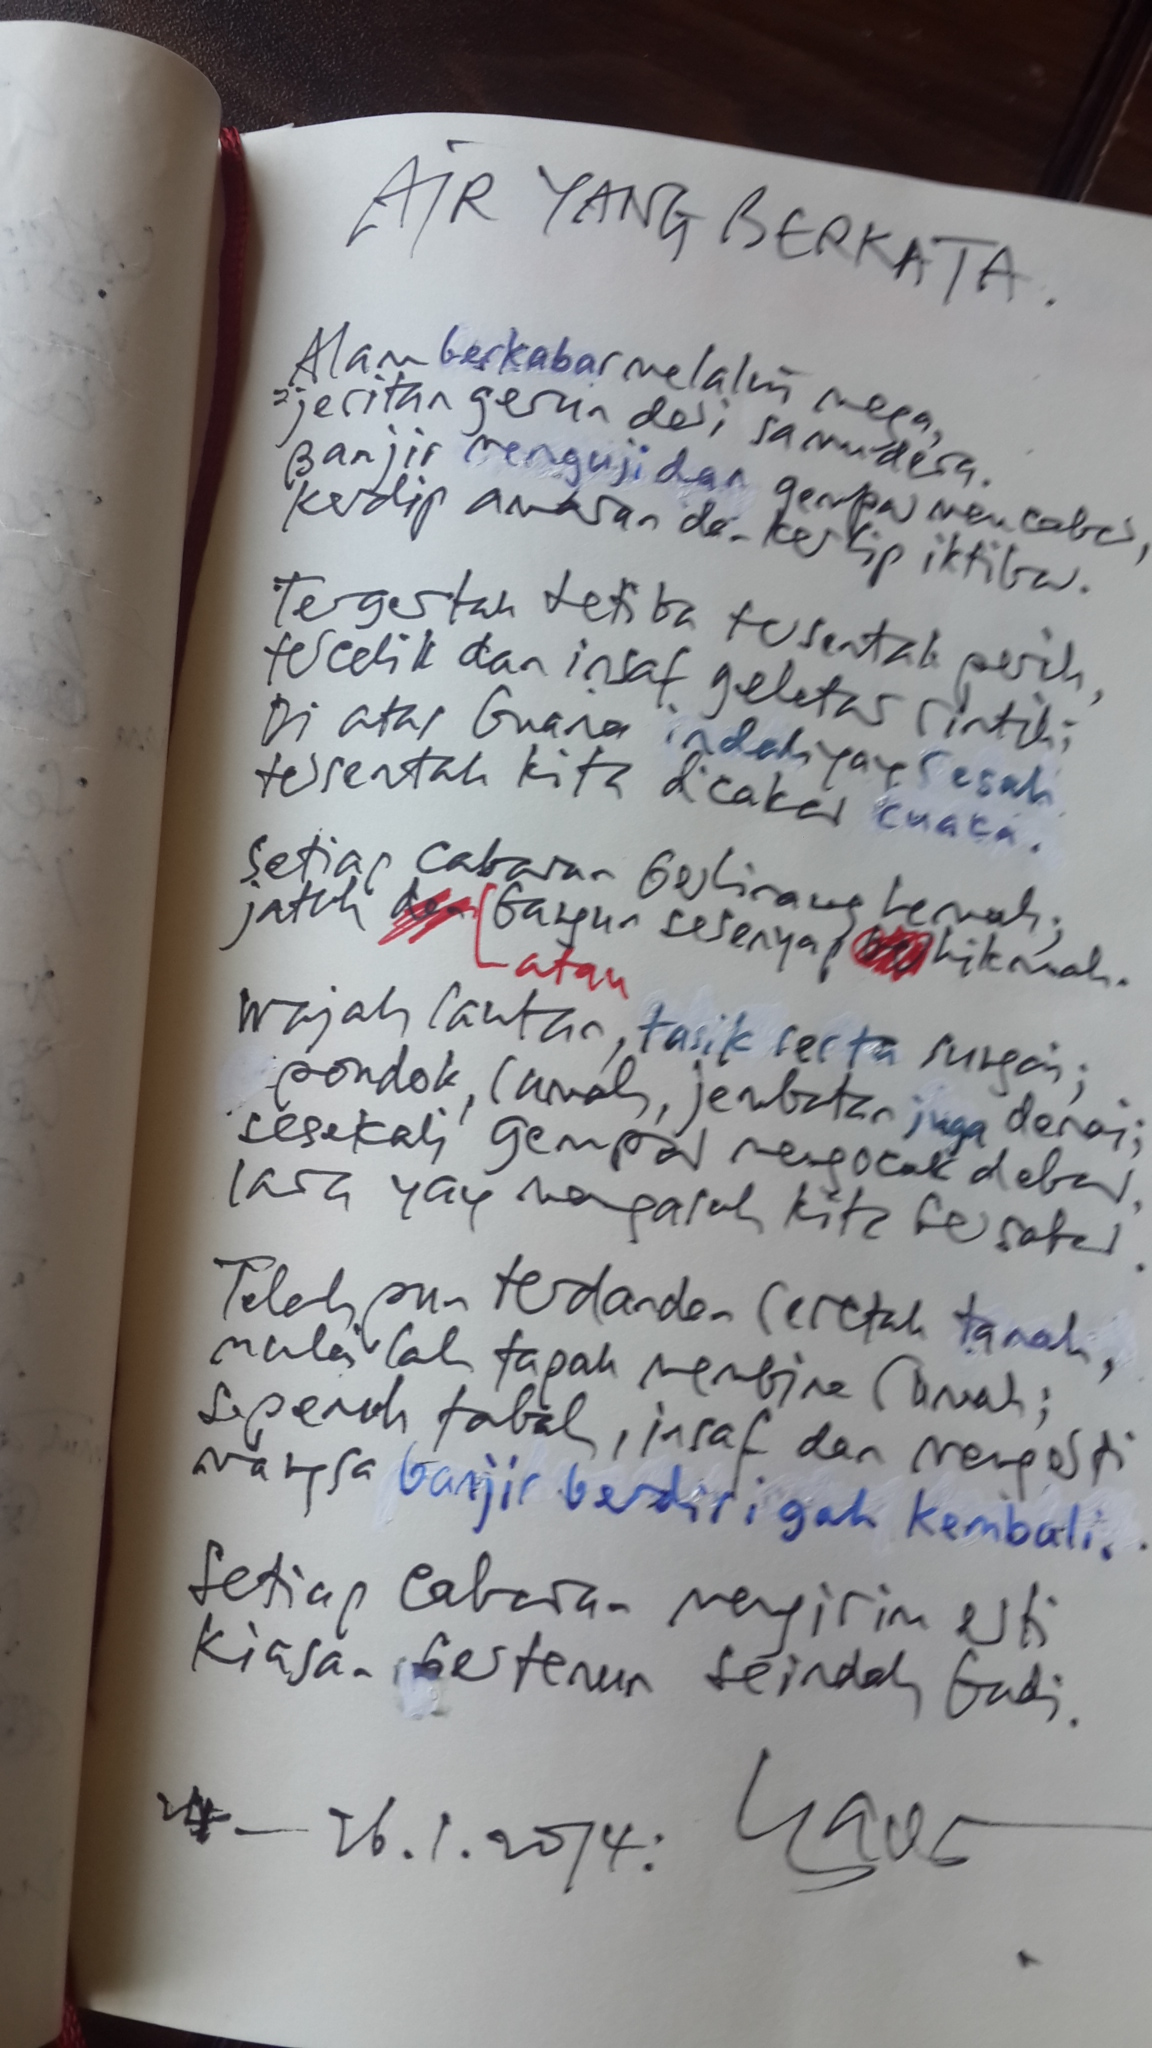 AIR YANG BERKATA.
Alam berkabar melalui mega,
jeritan gerun dari samudera.
Banjir menguji dan gempar mencabar,
kerdip amaran dan kerlip iktibar.
Tergertah tetiba tersentak perih,
tercelik dan insaf geletar rintih;
Di atas buana indah yang resah
tersentak kita dicakar cuaca.
Setiap cabaran berlinang hemah;
jatuh atau bangun sesenyap hikmah.
Wajah lautan, tasik serta sungai;
pondok, rumah, jembatan juga denai;
sesekali gempar mengocak debar,
lara yang mengasuh kita bersabar.
Telah pun terdandan seretak tanah,
mulai lah tapak membina rumah;
sepenuh tabah, insaf dan mengerti
mangsa banjir berdiri gah kembali.
Setiap cabaran mengirim erti
kiasan bertenun seindah budi.
— 26.1.2014: